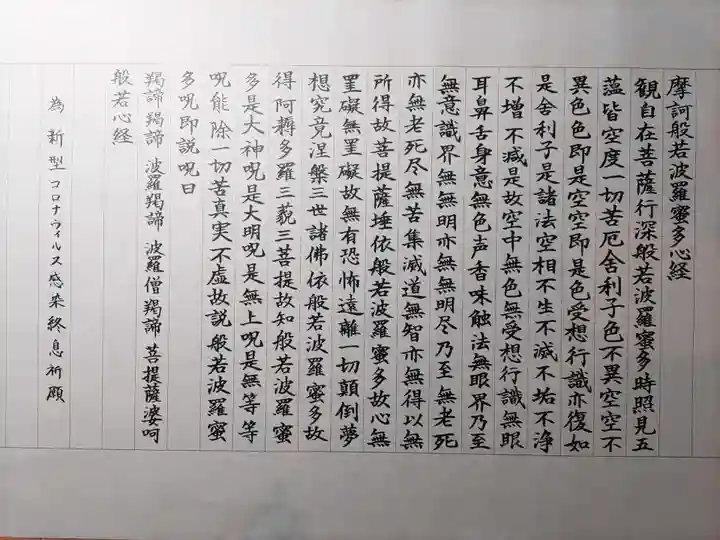 摩訶般若波羅蜜多心経
観自在菩薩行深般若波羅蜜多時照見五
蘊皆空度一切苦厄舍利子色不異空空不
異色色即是空空即是色受想行識亦復如
是舍利子是諸法空相不生不滅不垢不浄
不増不減是故空中無色無受想行識無眼
耳鼻舌身意無色声香味触法無眼界乃至
無意識界無無明亦無無明尽乃至無老死
亦無老死尽無苦集滅道無智亦無得以無
所得故菩提薩埵依般若波羅蜜多故心無
罣礙無罣礙故無有恐怖遠離一切顛倒夢
想究竟涅槃三世諸佛依般若波羅蜜多故
得阿耨多羅三藐三菩提故知般若波羅蜜
多是大神呪是大明呪是無上呪是無等等
呪能除一切苦真実不虚故説般若波羅蜜
多呪即説呪曰
羯諦羯諦 波羅羯諦 波羅僧羯諦 菩提薩婆呵
般若心経
為新型コロナウィルス感染終息祈願